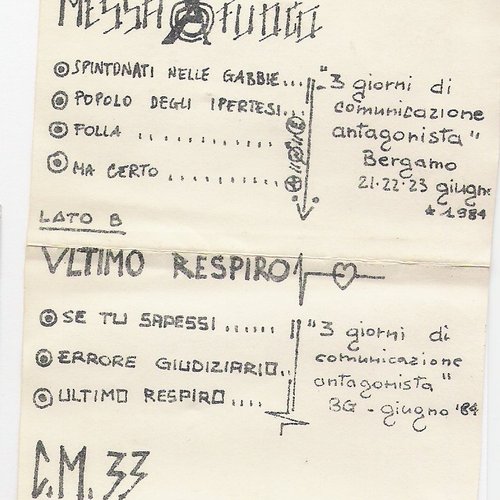 MESSA A FUOCO
SPINTONATI NELLE GABBIE...
POPOLO DEGLI IPERTESI...
FOLLA ............
MA CERTO .........
"3 giorni di
comunicazione
antagonista"
Bergamo
21-22-23 giugno
★ 1984
LATO B
ULTIMO RESPIRO
SE TU SAPESSI ......
ERRORE GIUDIZIARIO..
ULTIMO RESPIRO....
"3 giorni di
comunicazione
antagonista"
BG - giugno '84
C.M. 33